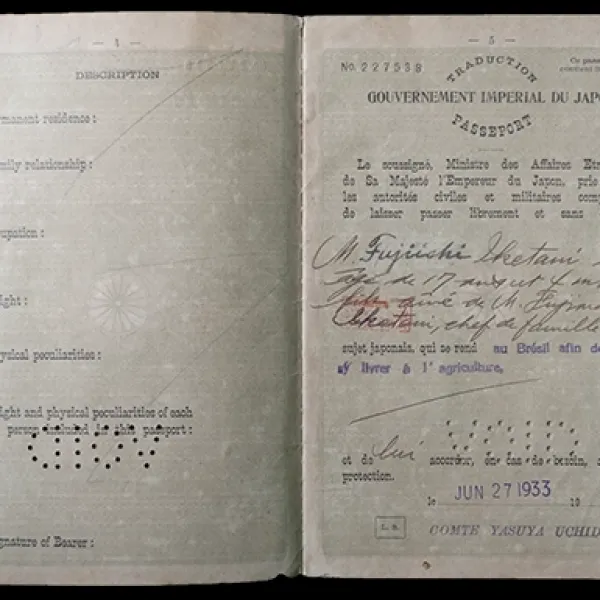 — 4 —
DESCRIPTION
manent residence :
mily relationship :
upation :
ight :
ysical peculiarities :
ight and physical peculiarities of each
person included in this passport :
gnature of Bearer :
— 5 —
No. 227538
Ce pass
TRADUCTION
GOUVERNEMENT IMPERIAL DU JAPO
PASSEPORT
Le soussigné, Ministre des Affaires Etr
de Sa Majesté l'Empereur du Japon, prie
les autorités civiles et militaires comp
de laisser passer librement et sans
M. Fujiishi Iketani
âgé de 17 ans et 4 m
fils aîné de M.
Iketani, chef de famille
sujet japonais, qui se rend au Brésil afin de
s'y livrer à l'agriculture,
et de lui accorder, en cas de besoin,
protection.
le JUN 27 1933 19
L. S. COMTE YASUYA UCHID